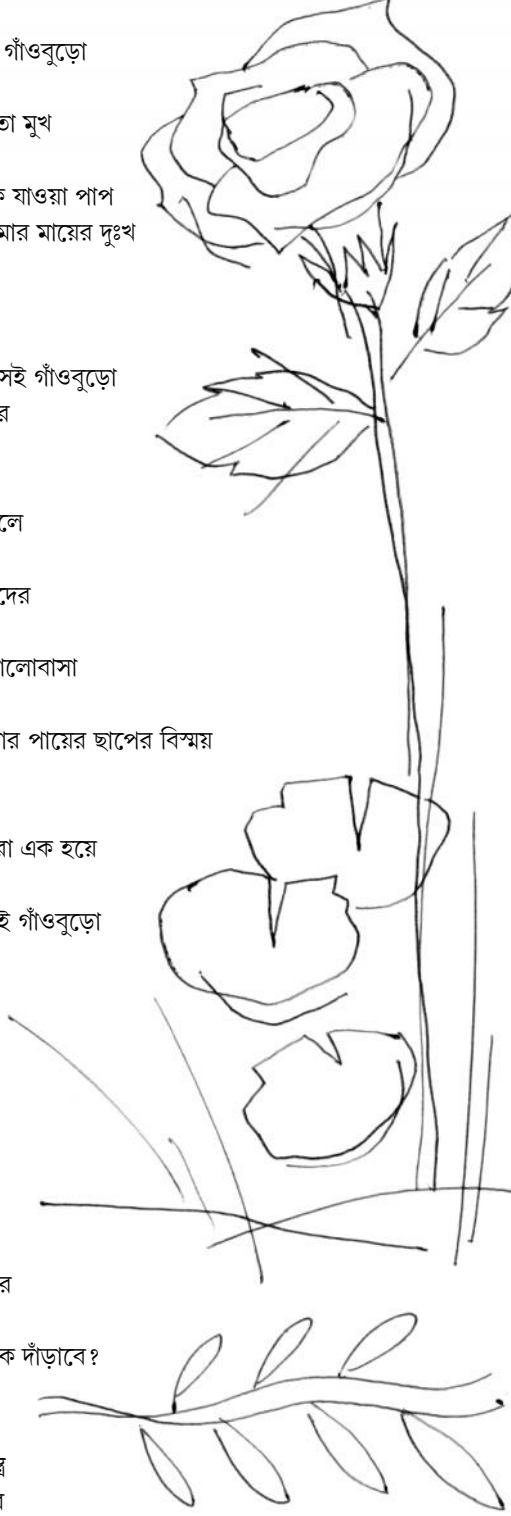 গাঁওবুড়ো
তা মুখ
ক যাওয়া পাপ
মার মায়ের দুঃখ
সেই গাঁওবুড়ো
র
লে
দের
ালোবাসা
ার পায়ের ছাপের বিস্ময়
রা এক হয়ে
ই গাঁওবুড়ো
র
ক দাঁড়াবে?
ন্ত্র
র